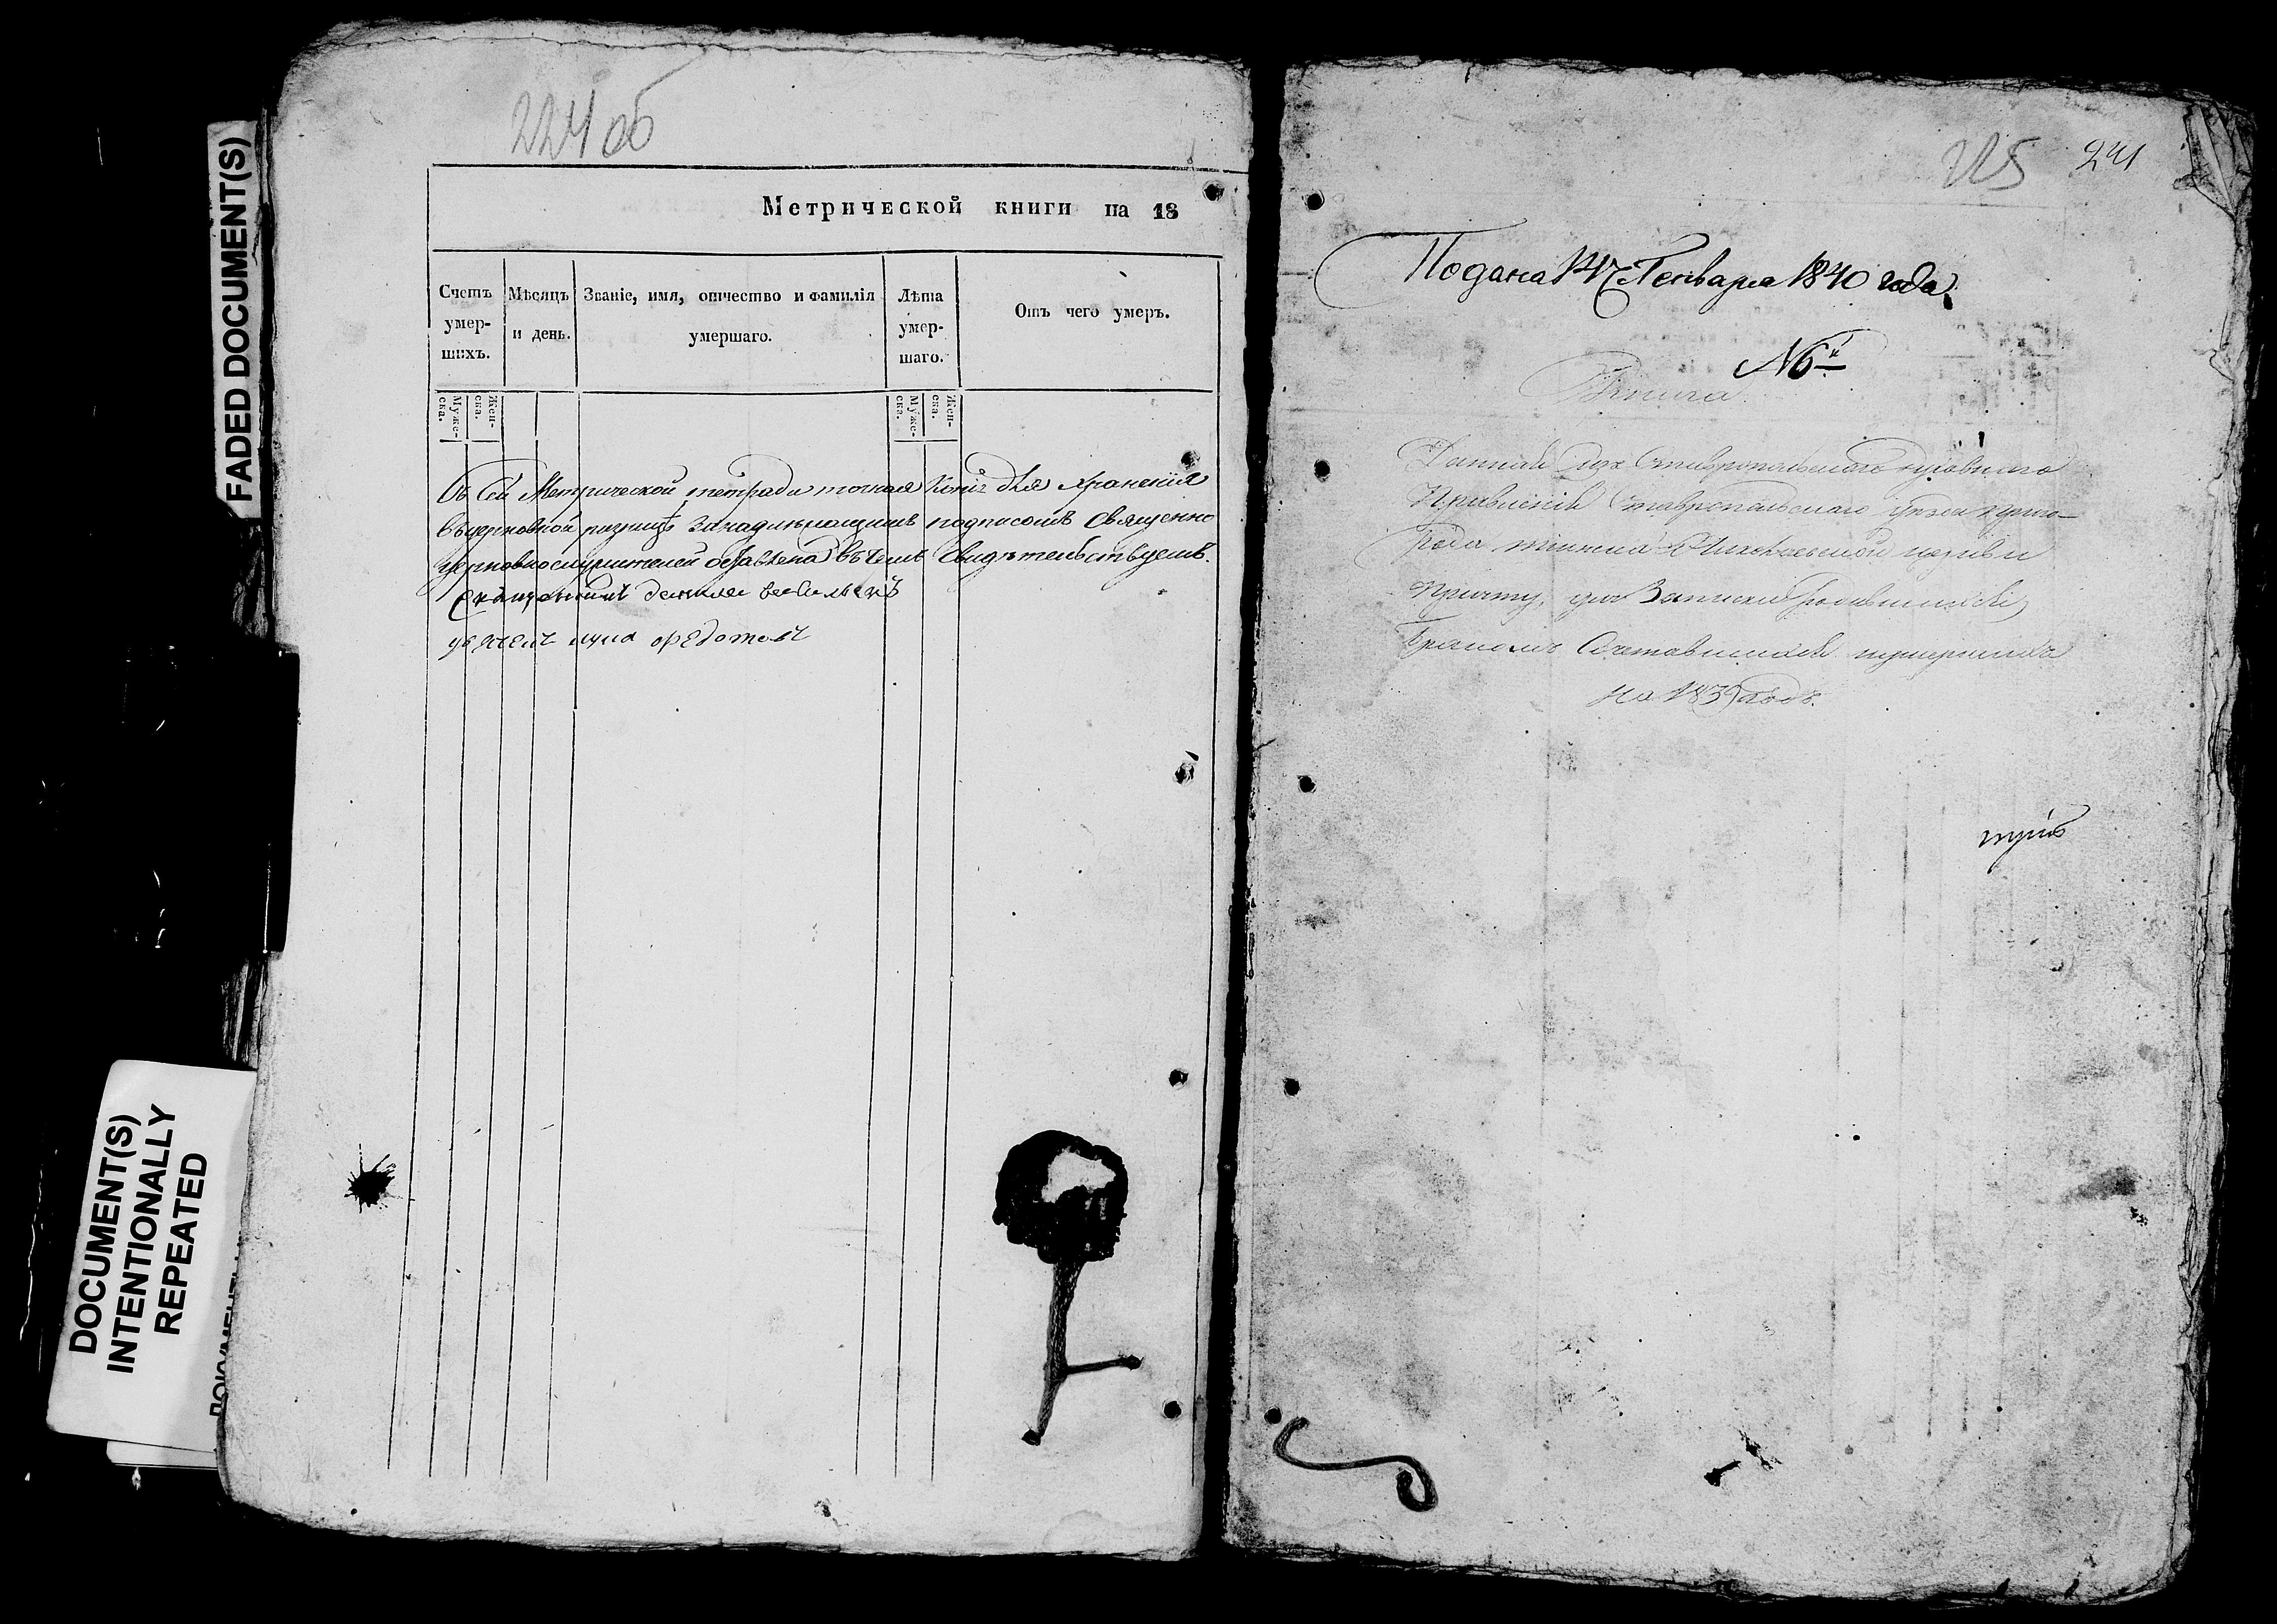 FADED DOCUMENT(S)
DOCUMENT(S)
INTENTIONALLY
REPEATED
224 об
Метрической книги на 18
Счетъ умер- шихъ.
Мѣсяцъ и день.
Званіе, имя, отчество и фамилія умершаго.
Лѣта умер- шаго.
Отъ чего умеръ.
Муже- ска.
Жен- ска.
Муже- ска.
Жен- ска.
Съ сей Метрической тетради точная Копія для храненія
въ церковной ризницѣ за надлежащимъ подписомъ Священно
церковнослужителей оставлена въ чемъ свидѣтельствуемъ.
Священникъ Василь
Федотовъ
225 241
Подана 17 Генваря 1840 года.
№ 6й
Книга
Данная изъ Ставропольскаго духовнаго
Правленія Ставропольскаго уѣзда
церкви
Причту, для Записки родившихся,
Бракомъ Сочетавшихся и умершихъ
на 1839 годъ.